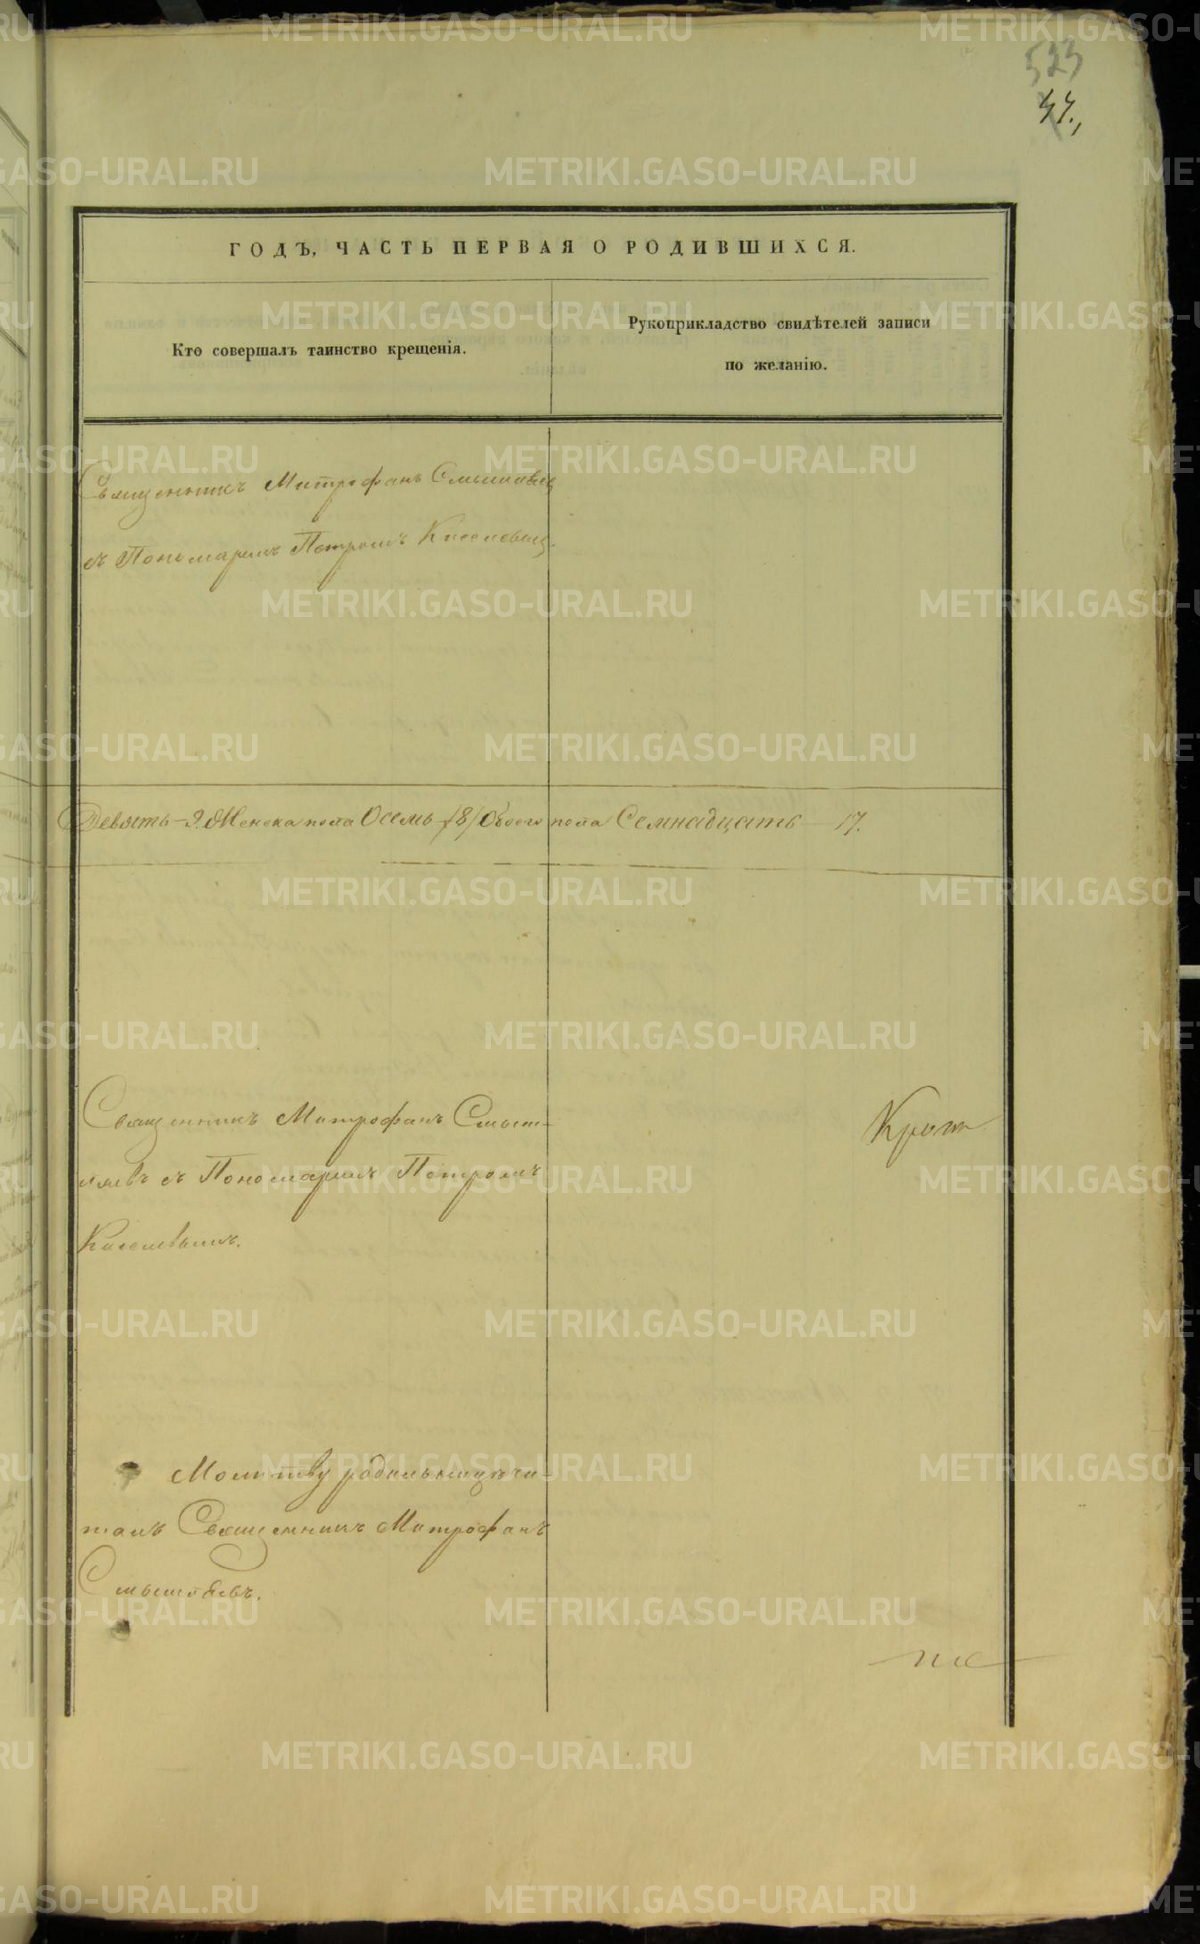 523
ГОДЪ, ЧАСТЬ ПЕРВАЯ О РОДИВШИХСЯ.
Кто совершалъ таинство крещенія.
Рукоприкладство свидѣтелей записи
по желанію.
Священникъ Митрофанъ Смышляевъ
съ Пономаремъ Петромъ Киселевымъ.
Девять – 9. Женска пола Осемь /8/ Обоего пола Семнадцать 17.
Священникъ Митрофанъ Смыш-
ляевъ съ Пономаремъ Петромъ
Киселевымъ.
Молитву родильницѣ чи-
талъ Священникъ Митрофанъ
Смышляевъ.
METRIKI.GASO-URAL.RU